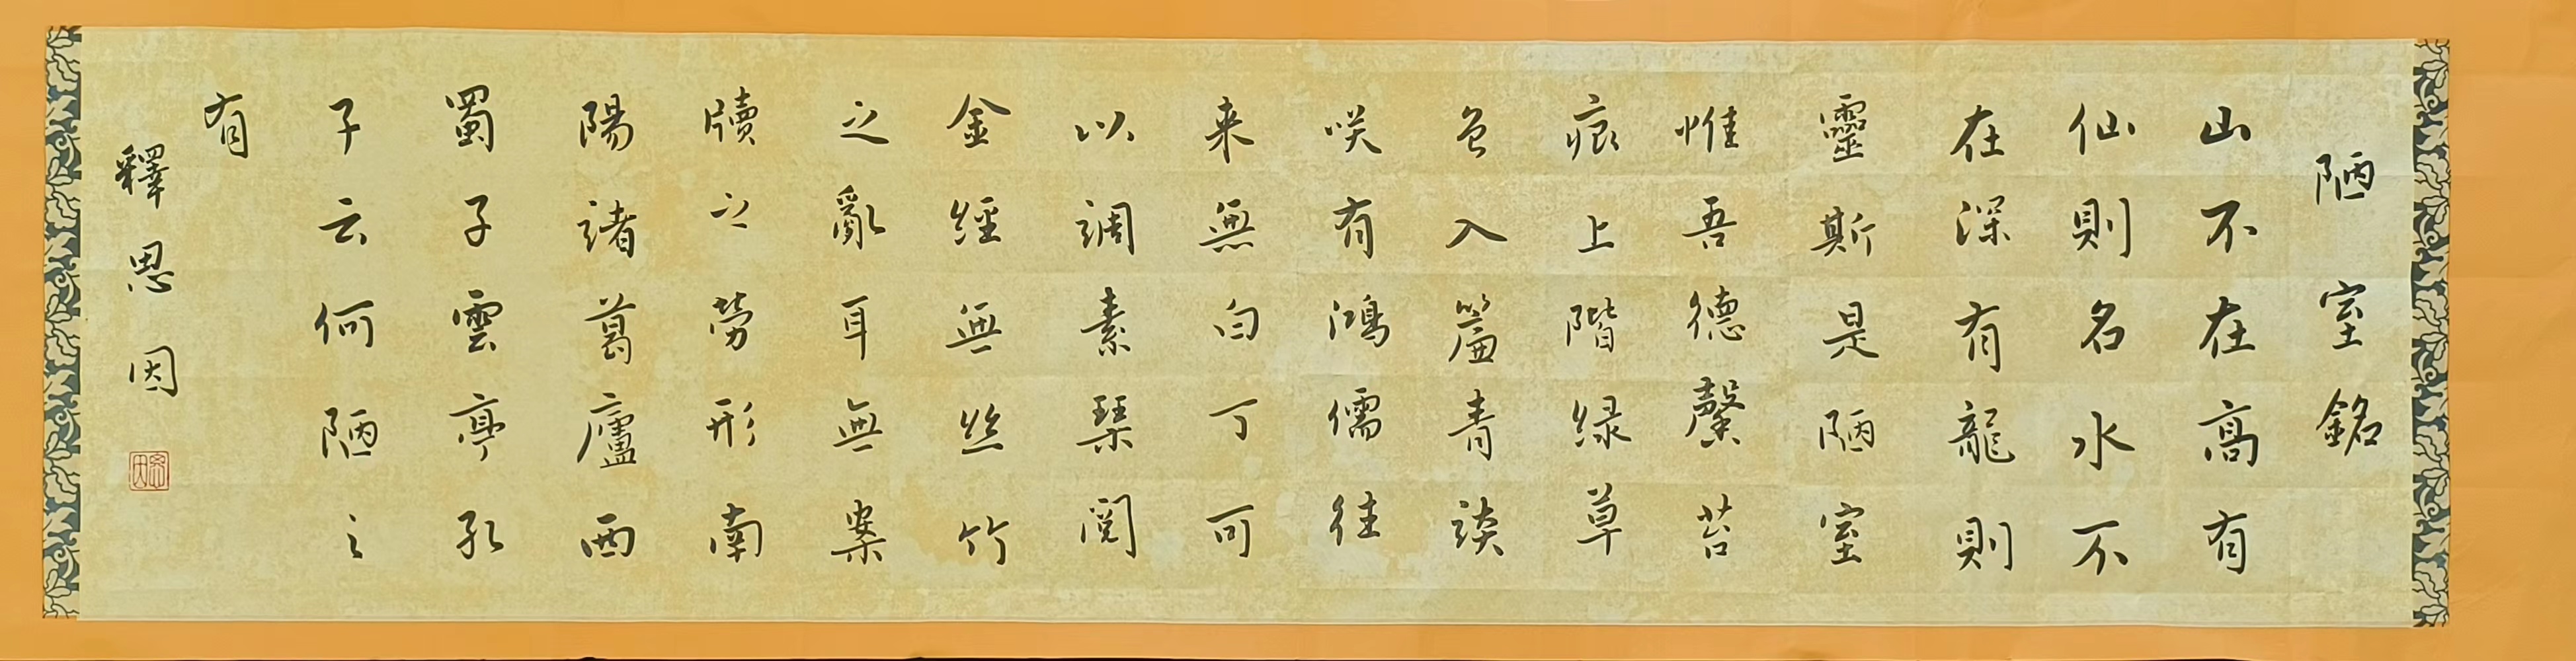 陋室銘
山不在高有
仙則名水不
在深有龍則
靈斯是陋室
惟吾德馨苔
痕上階緑草
色入簾青談
咲有鴻儒往
来無白丁可
以調素琴閲
金經無絲竹
之亂耳無案
牘之勞形南
陽諸葛廬西
蜀子雲亭孔
子云何陋之
有
釋恩因